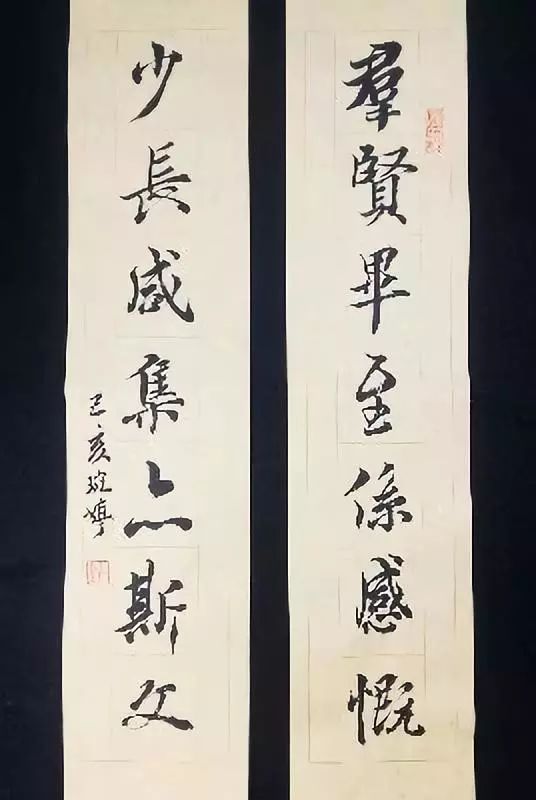 羣賢畢至係感慨
少長咸集亦斯文
己亥